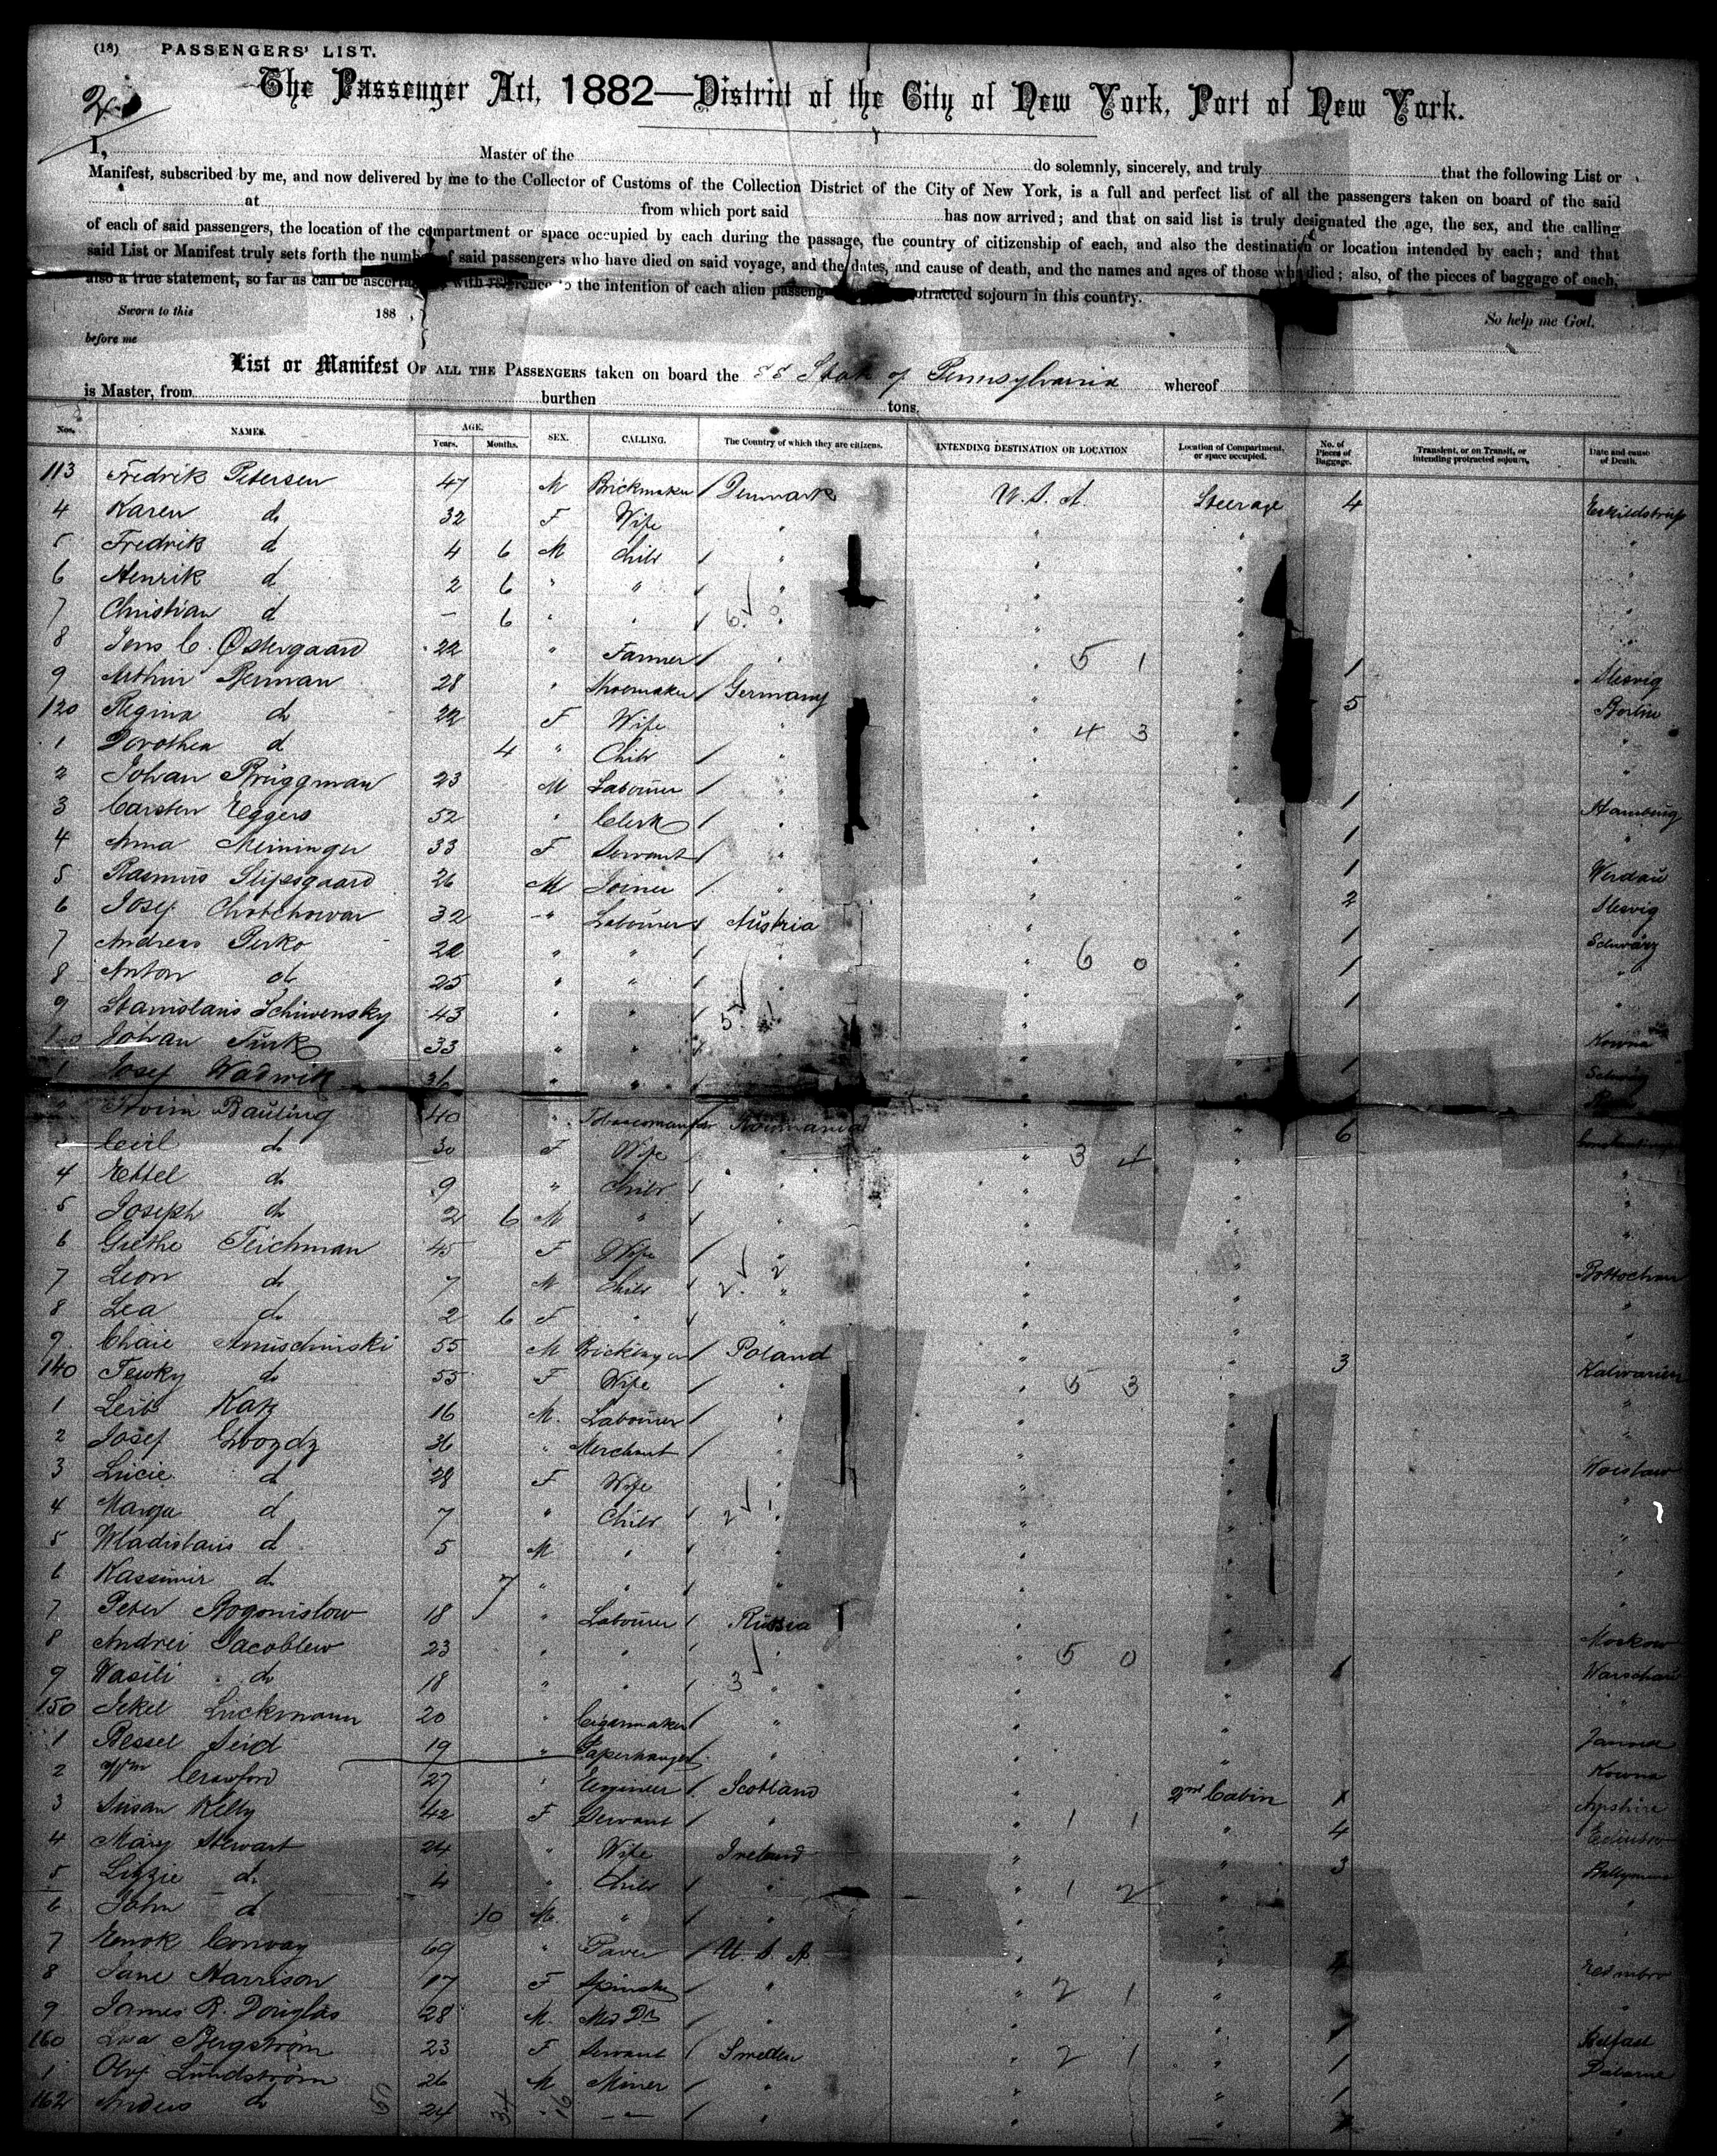 (18) PASSENGERS' LIST.
The Passenger Act, 1882—District of the City of New York, Port of New York.
I, Master of the do solemnly, sincerely, and truly that the following List or
Manifest, subscribed by me, and now delivered by me to the Collector of Customs of the Collection District of the City of New York, is a full and perfect list of all the passengers taken on board of the said
at from which port said has now arrived; and that on said list is truly designated the age, the sex, and the calling
of each of said passengers, the location of the compartment or space occupied by each during the passage, the country of citizenship of each, and also the destination or location intended by each; and that
said List or Manifest truly sets forth the number of said passengers who have died on said voyage, and the dates, and cause of death, and the names and ages of those who died; also, of the pieces of baggage of each,
also a true statement, so far as can be with reference to the intention of each alien sojourn in this country.
Sworn to this 188 So help me God.
before me
List or Manifest OF ALL THE PASSENGERS taken on board the SS State of Pennsylvania whereof
is Master, from burthen tons.
Nos. NAMES. AGE. Years. Months. SEX. CALLING. The Country of which they are citizens. INTENDING DESTINATION OR LOCATION Location of Compartment, or space occupied. No. of Pieces of Baggage. Transient, or on Transit, or intending protracted sojourn. Date and cause of Death.
113 Fredrik Petersen 47 M Brickmaker Denmark U.S.A. Steerage 4 Eskildstrup
4 Karen do 32 F Wife " " " "
5 Fredrik d 4 6 M Child " " "
6 Henrik d 2 6 " " " " "
7 Christian d - 6 " " 6 " " "
8 Jens C. Østergaard 22 " Farmer " " 5 1 " 1 Slesvig
9 Berman 28 " Shoemaker Germany " 5 Berlin
120 Regina do 22 F Wife " " 4 3 " "
1 Dorothea d 4 " Child " " " "
2 Johan Brüggman 23 M Labourer " " " 1 Hamburg
3 Carsten Eggers 52 " Clerk " " 1 "
4 Anna Meininger 33 F Servant " " " 1 Werdau
5 Rasmus Slipsgaard 26 M Joiner " " " 2 Slesvig
6 Josef 32 " Labourer Austria " 1
7 Andreas Perko 22 " " " " 6 0 " 1 "
8 Anton do 25 " " " " " 1 "
9 Stanislaus 43 " " 5 " " Kowna
Johan Turk 33 " " " " 1
1 Josef 36 " " " "
40 " Roumania " 6
do 30 F Wife " " 3 4 "
4 Ettel do 9 " Child " " " "
5 Joseph do 2 6 M " " " " "
6 Grethe Teichman 45 F Wife " " "
7 Leon do 7 M Child 2 2 " " " "
8 Lea do 2 6 F " " " "
9 Chaie 55 M Bricklayer Poland " " 3
140 Tewky do 55 F Wife " " 5 3 " "
1 Leib Katz 16 M. Labourer " " " "
2 Josef Gwozdz 36 " Merchant " " "
3 Lucie d 28 F Wife " " " "
4 d 7 " Child 2 1 " " "
5 Wladislaus d 5 M " " " " "
6 Kassimir do 7 " " " " " "
7 Peter Bogomislow 18 " Labourer Russia " " Moskow
8 Andrei Jacoblew 23 " " " " 5 0 " 1 Warschau
9 Wasili do 18 " " 3 " " " "
150 Jekel Luckmann 20 " Cigarmaker " " "
1 Bessel Seid 19 " Paperhanger " " " Kowna
2 Wm Crawford 27 " Engineer Scotland " 2nd Cabin 1
3 Susan Kelly 42 F Servant " " 1 1 " 4
4 Mary Stewart 24 " Wife Ireland " " 3 Ballymena
5 Lizzie do 4 " Child " " 1 2 " "
6 John d 10 M. " " " " "
7 Conway 69 " Paver U.S.A. " " 4
8 Jane Harrison 17 F Spinster " " 2 1 " "
9 James R. Douglas 28 M. " " " Belfast
160 Bergström 23 F Servant Sweden " 2 1 " 1
1 Lundström 26 M Miner " " " 1 "
162 Anders do 24 " " " " "
50 34 16